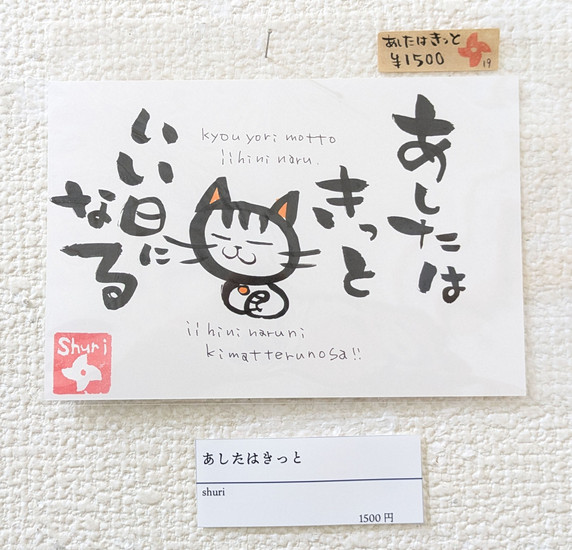 あしたはきっと
¥1500
19
あしたは
きっと
いい日に
なる
kyou yori motto
iihini naru.
iihini naruni
kimatterunosa!!
Shuri
あしたはきっと
shuri
1500円